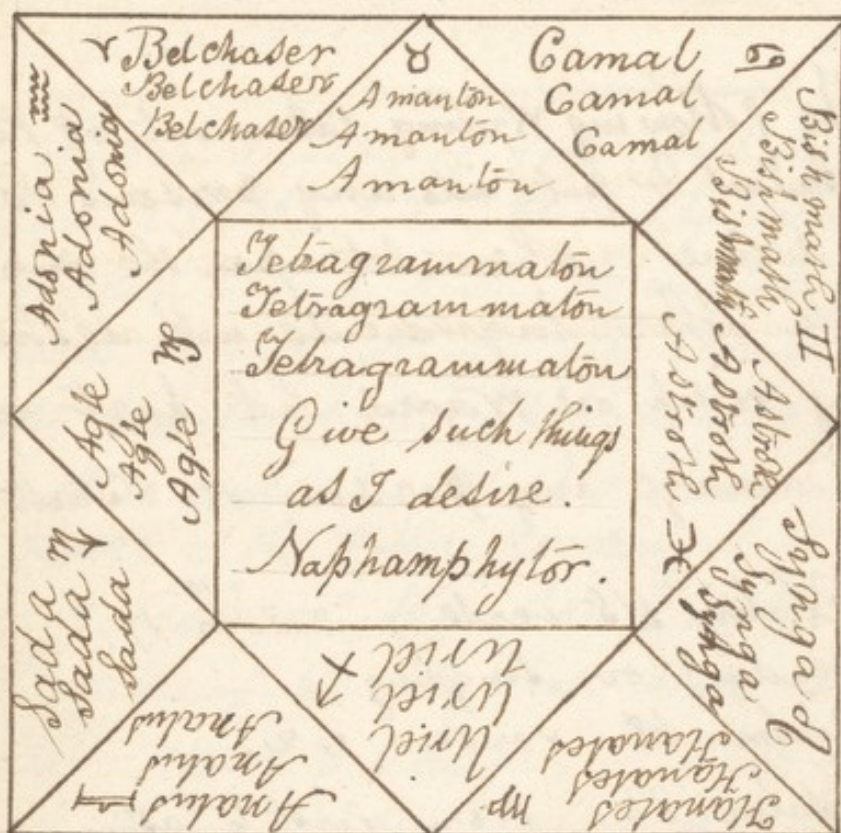 ♈ Belchaser
Belchaser
Belchaser
♉
Amantōn
Amantōn
Amantōn
Camal ♋
Camal
Camal
Bishmath ♊
Bishmath
Bishmath
Astroth
Astroth
Astroth ♓
Synga ♌
Synga
Synga
Hanates
Hanates
Hanates
♍
Uriel
Uriel
Uriel
♐
Analus
Analus
Analus
♎
Sada ♏
Sada
Sada
Agle
Agle
Agle ♑
Adonia ♒
Adonia
Adonia
Tetragrammatōn
Tetragrammatōn
Tetragrammatōn
Give such things
as I desire.
Naphamphytōr.